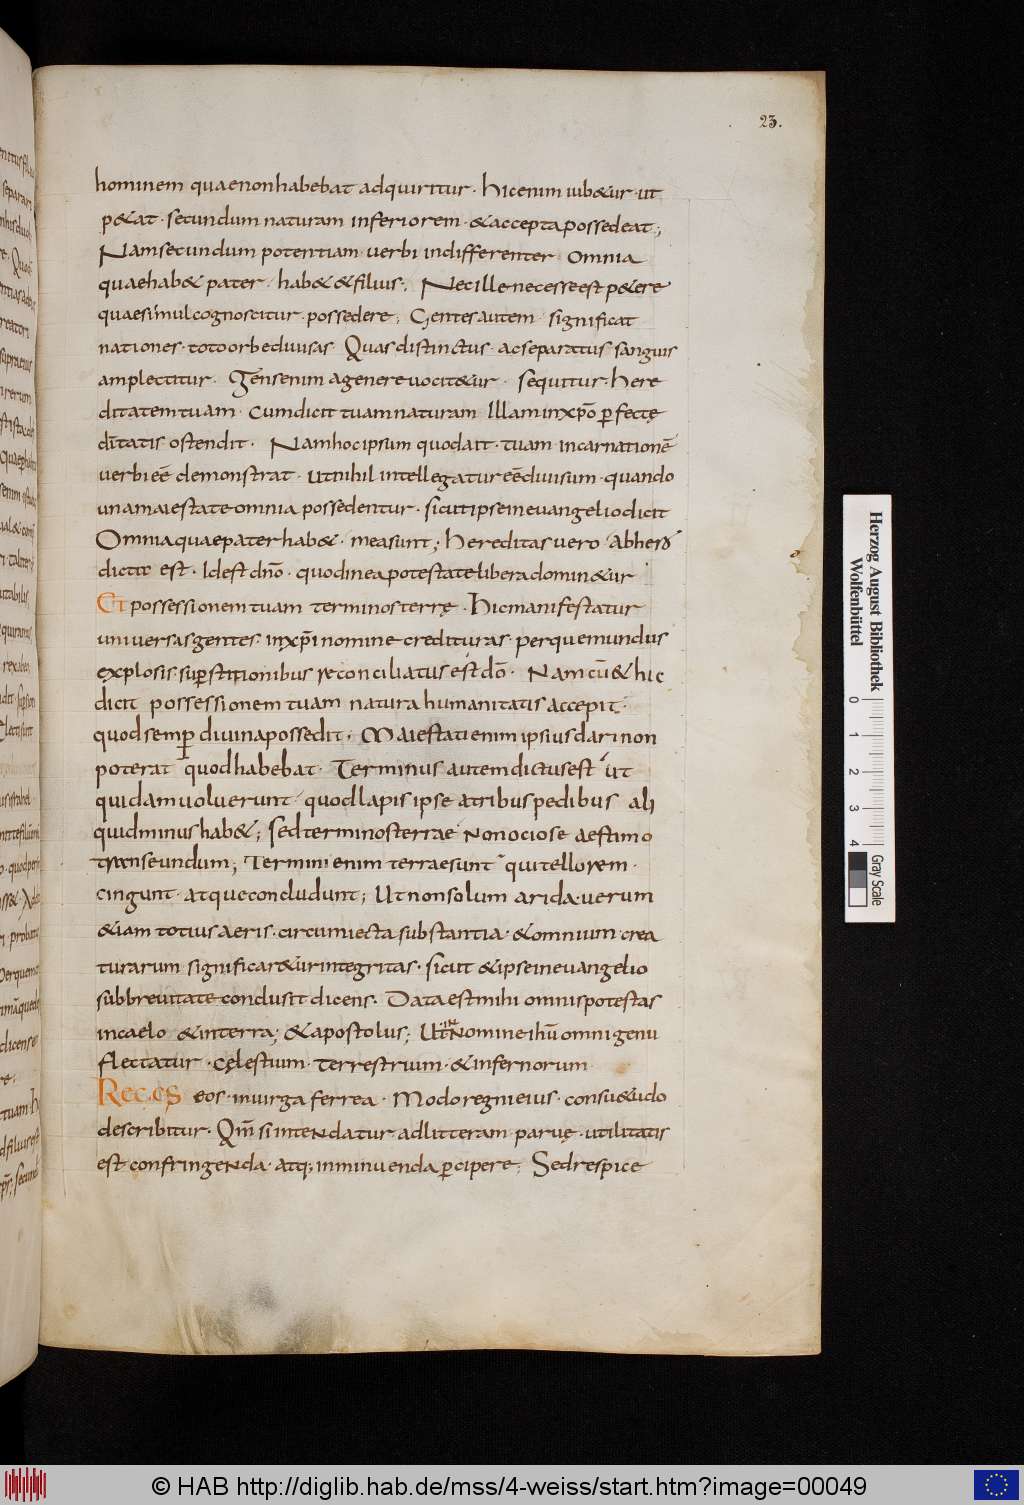 23.
hominem quae non habebat adquiritur · hic enim iub&ur · ut
p&at · secundum naturam inferiorem · &accepta possedeat ;
Nam secundum potentiam · verbi indifferenter omnia
quae hab& pater · hab& & filius · Nec ille necesse est p&ere
quae simul cognoscitur · possedere ; Gentes autem · significat
nationes · toto orbe divisas Quas distinctus · ac separatus sanguis
amplectitur · Gens enim a genere vocit&ur · sequitur · here
ditatem tuam · Cum dicit tuam naturam Illam in xp̄o ꝑfectę
dn̄itatis ostendit · Nam hoc ipsum quod ait · tuam · incarnationē
verbi eē demonstrat · ut nihil intellegatur eē divisum · quando
una maiestate omnia possedentur · sicut ipse in evangelio dicit
Omnia quae pater hab& · mea sunt ; Hereditas vero Ab
dicta est · Id est dn̄o · quod in ea potestate libera domin&ur
Et possessionem tuam terminos terrę · Hic manifestatur
universas gentes · in xp̄i nomine credituras · per quem mundus
explosis · suꝑstitionibus reconciliatus est dō · Nam cū & hic
dicit possessionem tuam natura humanitatis accepit ·
quod semꝑ divina possedit · Maiestati enim ipsius dari non
poterat quod habebat · Terminus autem dictus est ut
quidam voluerunt · quod lapis ipse a tribus pedibus ali
quid minus hab& ; sed terminos terrae non ociose aestimo
transeundum ; Termini enim terrae sunt qui tellorem ·
cingunt · atque concludunt ; Ut non solum arida · verum
&iam totius aeris · circumiecta substantia · & omnium · crea
turarum significar&ur integritas · sicut & ipse in evangelio
sub brevitate conclusit dicens · Data est mihi omnis potestas
in caelo & in terra ; & apostolus ; Ut in nomine ihū omni genu
flectatur · cęlestium · terrestrium · & infernorum
Reges eos · in virga ferrea · Modo regni eius · consu&udo
describitur · Qm̄ si intendatur ad litteram parvę · utilitatis
est confringenda · atq; in minuenda ꝑcipere ; Sed respice
Herzog August Bibliothek
Wolfenbüttel
0 1 2 3 4
Gray Scale
© HAB http://diglib.hab.de/mss/4-weiss/start.htm?image=00049